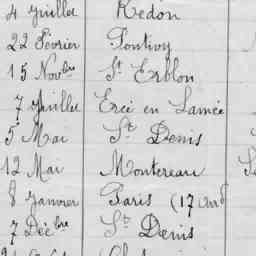 4 Juillet Redon
22 Février Pontivy
15 Novbre St Erblon
7 Juillet Ercé en Lamée
5 Mai St Denis
12 Mai Montereau
8 Janvier Paris (17 Arrd
7 Décbre St Denis